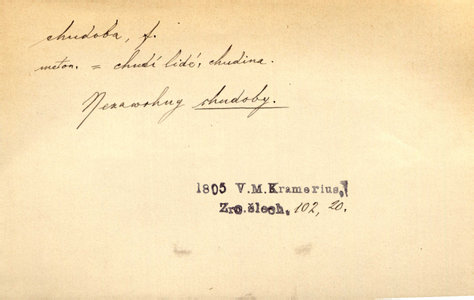 chudoba, f.
meton. = chudí lidé, chudina.
Nezawrhug chudoby.
1805 V.M.Kramerius,
Zrc.šlech. 102, 20.